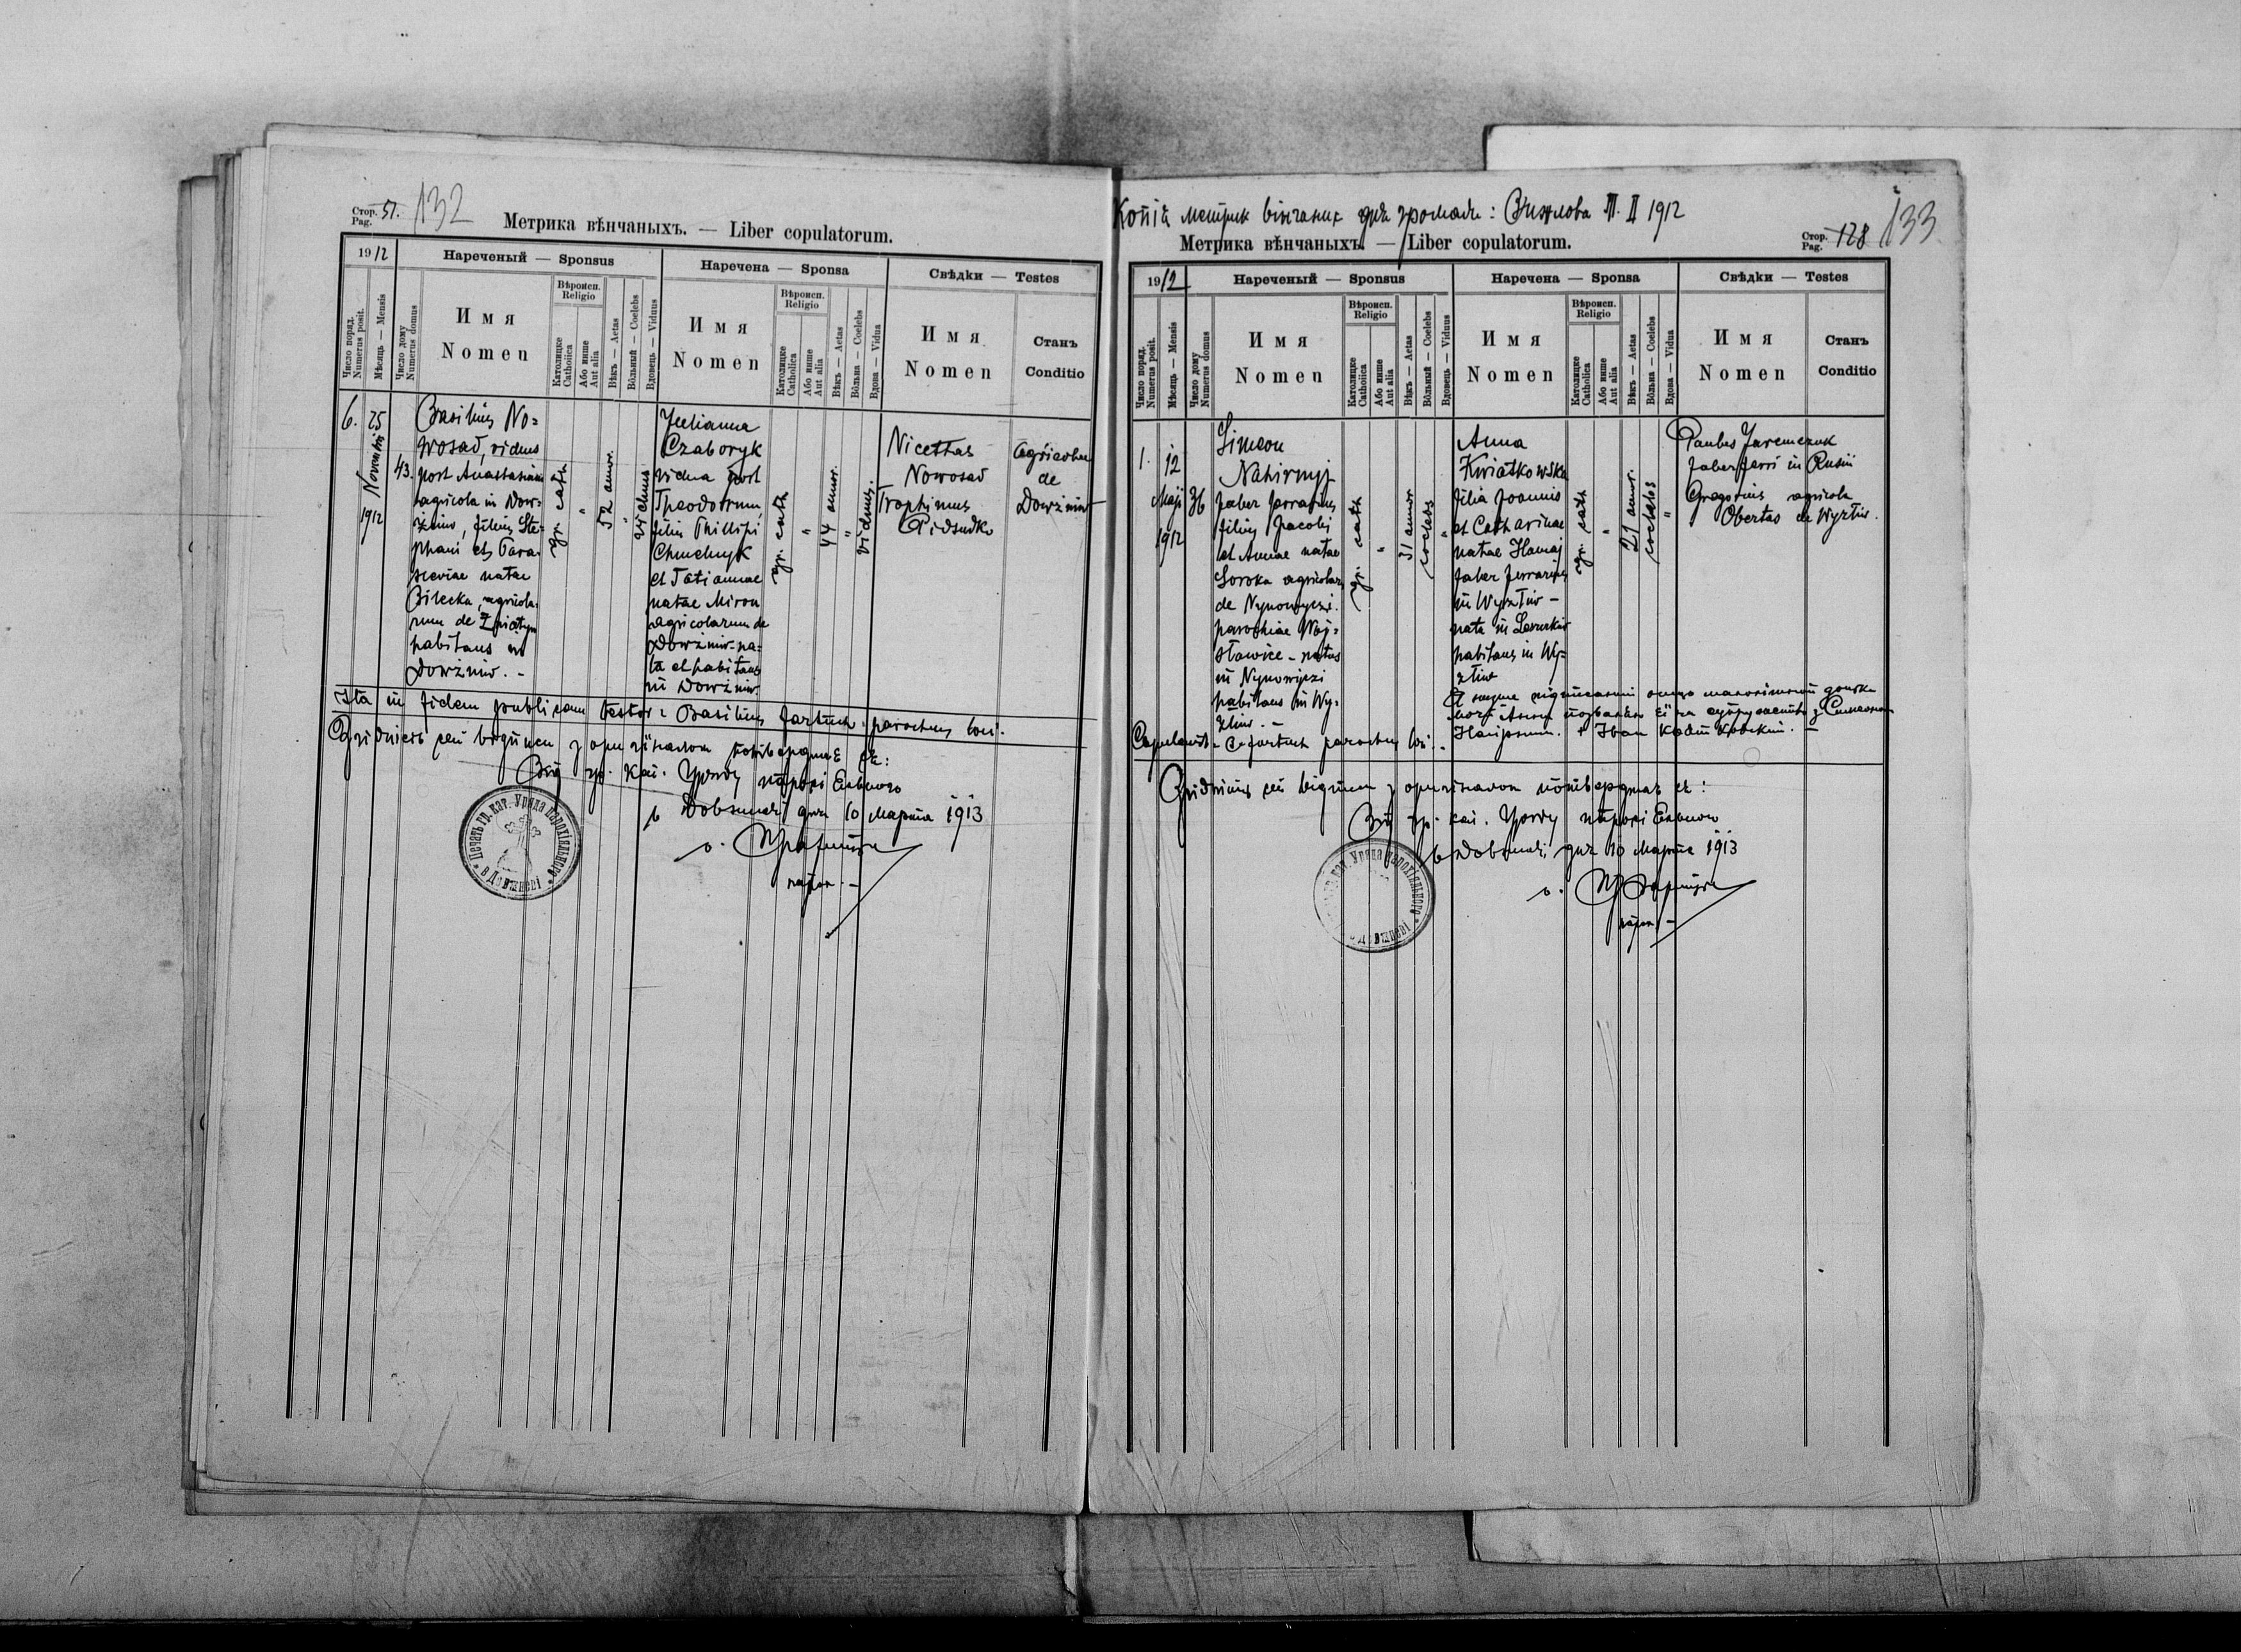 Стор. 51. 132
Pag.
Метрика вѣнчаныхъ. — Liber copulatorum.
1912
Нареченый — Sponsus
Наречена — Sponsa
Свѣдки — Testes
Число поряд.
Numerus posit.
Мѣсяць — Mensis
Число дому
Numerus domus
Имя
Nomen
Вѣроисп.
Religio
Католицке
Catholica
Або инше
Aut alia
Вѣкъ — Aetas
Вôльный — Coelebs
Вдовець — Viduus
Имя
Nomen
Вѣроисп.
Religio
Католицке
Catholica
Або инше
Aut alia
Вѣкъ — Aetas
Вôльна — Coelebs
Вдова — Vidua
Имя
Nomen
Станъ
Conditio
6.
25
Novembris
1912
43.
Basilius No=
wosad, viduus
post Anastasiam
agricola in Dow=
żniw, filius Ste=
phani et Para=
sceviae natae
Bilecka, agricola=
rum de
habitans in
Dowżniw. -
gr. cath
"
52 annor.
"
viduus
Julianna
Czaboryk
vidua post
Theodorum,
filia Phillipi
Chmelnyk
et Tatiannae
natae Miron
agricolarum de
Dowżniw - na=
ta et habitans
in Dowżniw.
gr. cath
"
44 annor.
"
viduus.
Nicethas
Nowosad
Trophimus
Didudko
Agricolae
de
Dowżniw
Ita in fidem publicam testor: Basilius Jartuch parochus loci.
Згідність сеї відписи з оригіналом потверджає ся:
Від гр. кат. Уряду парохіяльного
в Довжневі дня 10 Марта 1913
о.
парох. -
Печать гр. кат. Уряда парохіяльного * в Довжневі *
Копія метрик вінчаних для громади: Вижлова Т. II 1912
Метрика вѣнчаныхъ. — Liber copulatorum.
Стор. 128 133
Pag.
1912
Нареченый — Sponsus
Наречена — Sponsa
Свѣдки — Testes
Число поряд.
Numerus posit.
Мѣсяць — Mensis
Число дому
Numerus domus
Имя
Nomen
Вѣроисп.
Religio
Католицке
Catholica
Або инше
Aut alia
Вѣкъ — Aetas
Вôльный — Coelebs
Вдовець — Viduus
Имя
Nomen
Вѣроисп.
Religio
Католицке
Catholica
Або инше
Aut alia
Вѣкъ — Aetas
Вôльна — Coelebs
Вдова — Vidua
Имя
Nomen
Станъ
Conditio
1.
12
Maji
1912
36
Simeon
Nahirnyj
faber ferrarius
filius Jacobi
et Annae natae
Soroka agricolarum
de
parochiae Woj=
sławice - natus
in
habitans in Wy=
żliw. -
gr. cath
"
31 annor
coelebs
"
Anna
Kwiatkowska
filia Joannis
et Catharinae
natae
faber ferrarius
in Wyżliw -
nata in
habitans in Wy=
żliw
gr. cath
"
21 annor.
coelebs
"
Paulus Jaremczuk
faber ferri in Rusin
Gregorius agricola
Obertas de Wyżliw.
Я низше підписаний отець малолітної доньки
моєї Анни позваляю єї на супружество з Симеоном
Нагірним. + Іван Квятковский. -
Copulavit Jartuch parochus loci. -
Згідність сеї відписи з оригіналом потверджає ся:
Від гр. кат. Уряду парохіяльного
в Довжневі, дня 10 Марта 1913
о.
парох -
кат. Уряда парохіяльного *